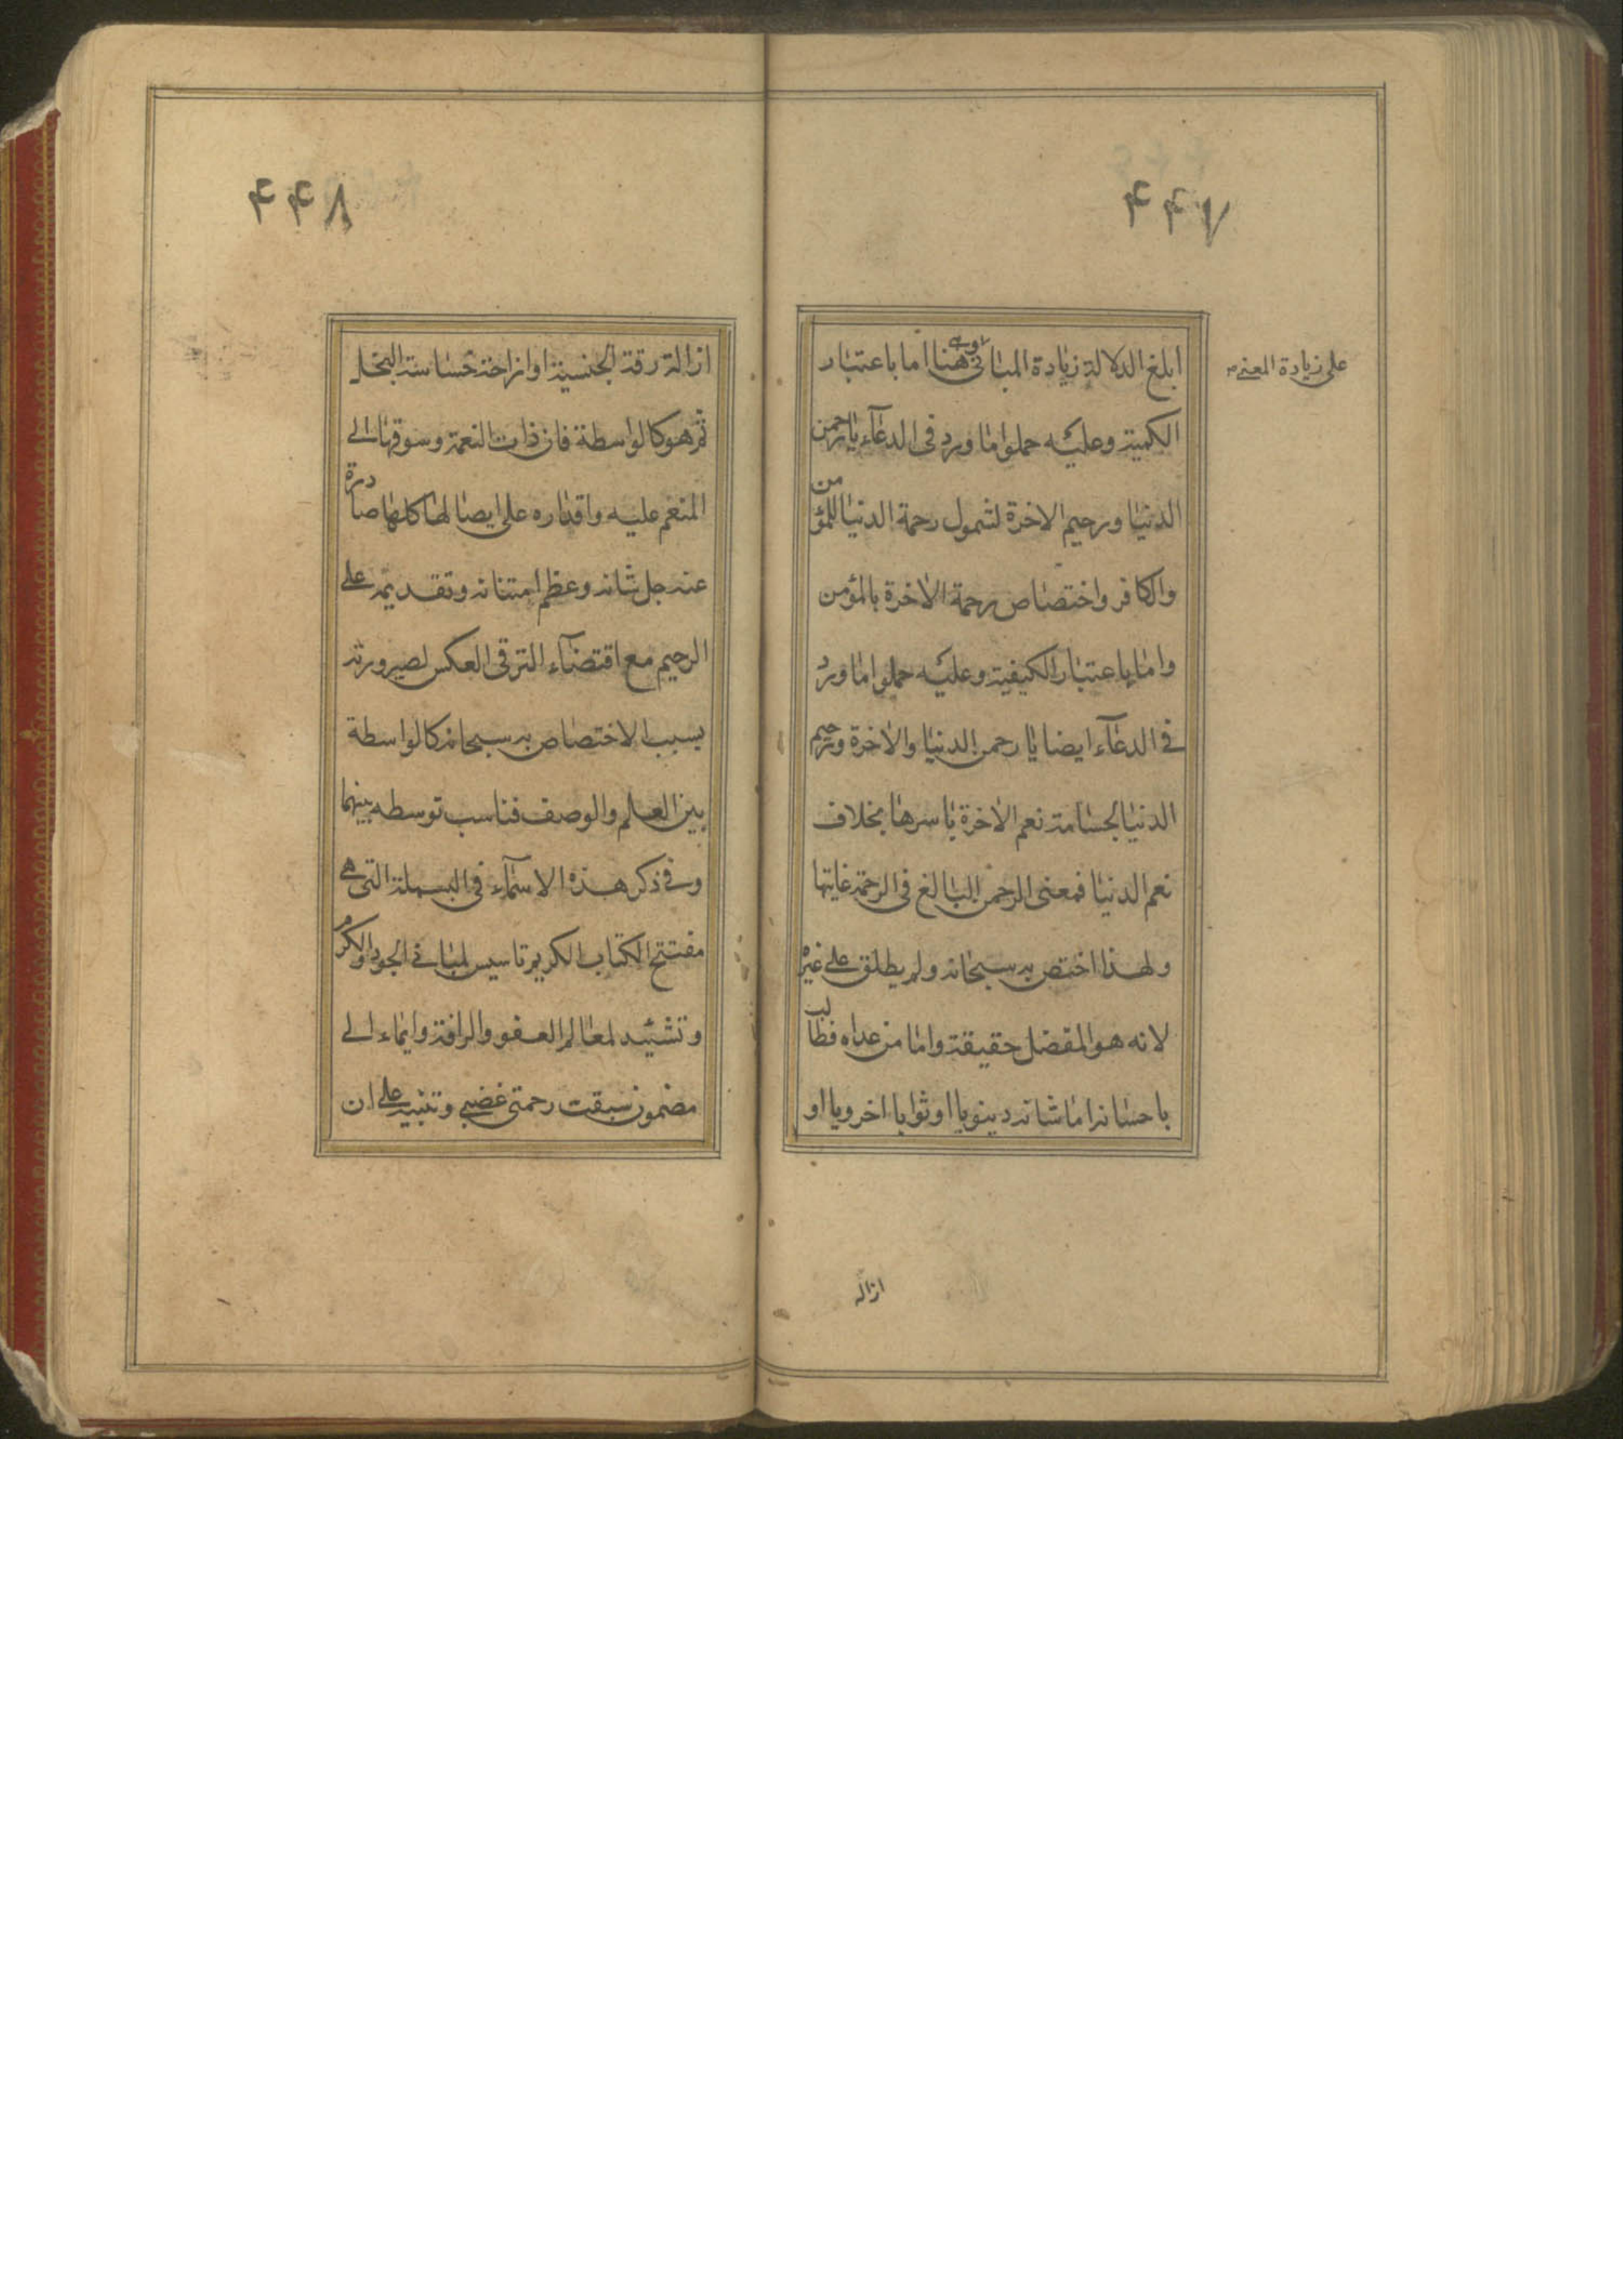 ۴۴۷
ابلغ لدلالة زيادة المبانى وهى هنا اما باعتبار
على زيادة المعنى
الكمية وعليه حملوا ما ورد فى الدعآء يا رحمن
الدنيا ورحيم الاخرة لشمول رحمة الدنيا للمؤمن
والكافر واختصاص رحمة الاخرة بالمؤمن
واما باعتبار الكيفية وعليه حملوا ما ورد
فى الدعآء ايضا يا رحمن الدنيا والاخرة ورحيم
الدنيا لجسامة نعم الاخرة باسرها بخلاف
نعم الدنيا فمعنى الرحمن البالغ فى الرحمة غايتها
ولهذا اختص به سبحانه ولم يطلق على غيره
لانه هو المفضل حقيقة واما من عداه فطالب
باحسانه اما شانه دينويا او ثوابا اخرويا او
ازاله
۴۴۸
ازالة رقة الجنسية او ازاحة خساسة البخل
ثم هو كالواسطة فان ذات النعمة وسوقها الى
المنعم عليه واقداره على ايصالها كلها صادرة
عنه جل شانه وعظم امتنانه وتقديمه على
الرحيم مع اقتضآء الترقى العكس لصيرورته
بسبب الاختصاص به سبحانه كالواسطة
بين العلم والوصف فناسب توسطه بينهما
وفى ذكر هذه الاسمآء فى البسملة التى هى
مفتتح الكتاب الكريم تاسيس لمبانى الجود والكرم
وتشئيد لمعالم العفو والرافة وايماء الى
مضمون سبقت رحمتى غضبى وتنبيه على ان